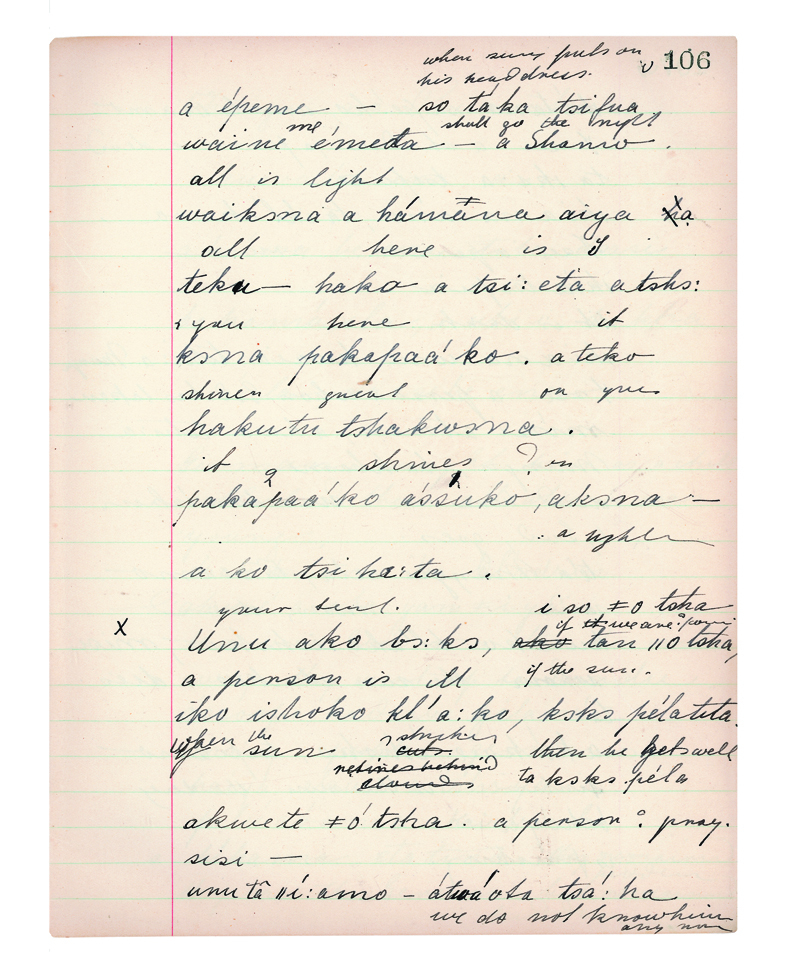 when sun puts on 106
his headdress.
a épeme — so taka tsifua
me shall go the night
waine émeta — a Shaniro.
all is light
waiksna a hámãna aiya
all here is
teku — hako a tsi: eta atshs:
you here it
ksna pakapaá'ko. ateko
shines great on you
hakutu tshakwsna.
it shines ? on
2 1
pakapaá'ko ássuko, aksna —
a light
a ko tsi ka:ta.
your soul. i so ǂo tsha
if we are
X Unu ako bs:ks, ako tan ǁo tsha,
a person is ill if the sun.
iko ishoko kl'a:ko, ksks pélatita.
When the sun strikes then he gets well
cuts
retires behind ta ksks péla
clouds
akwete ǂó tsha. a person: pray.
sisi —
unu tâ ǁí:amo — átwáota tsá: ha
we do not know him
any more